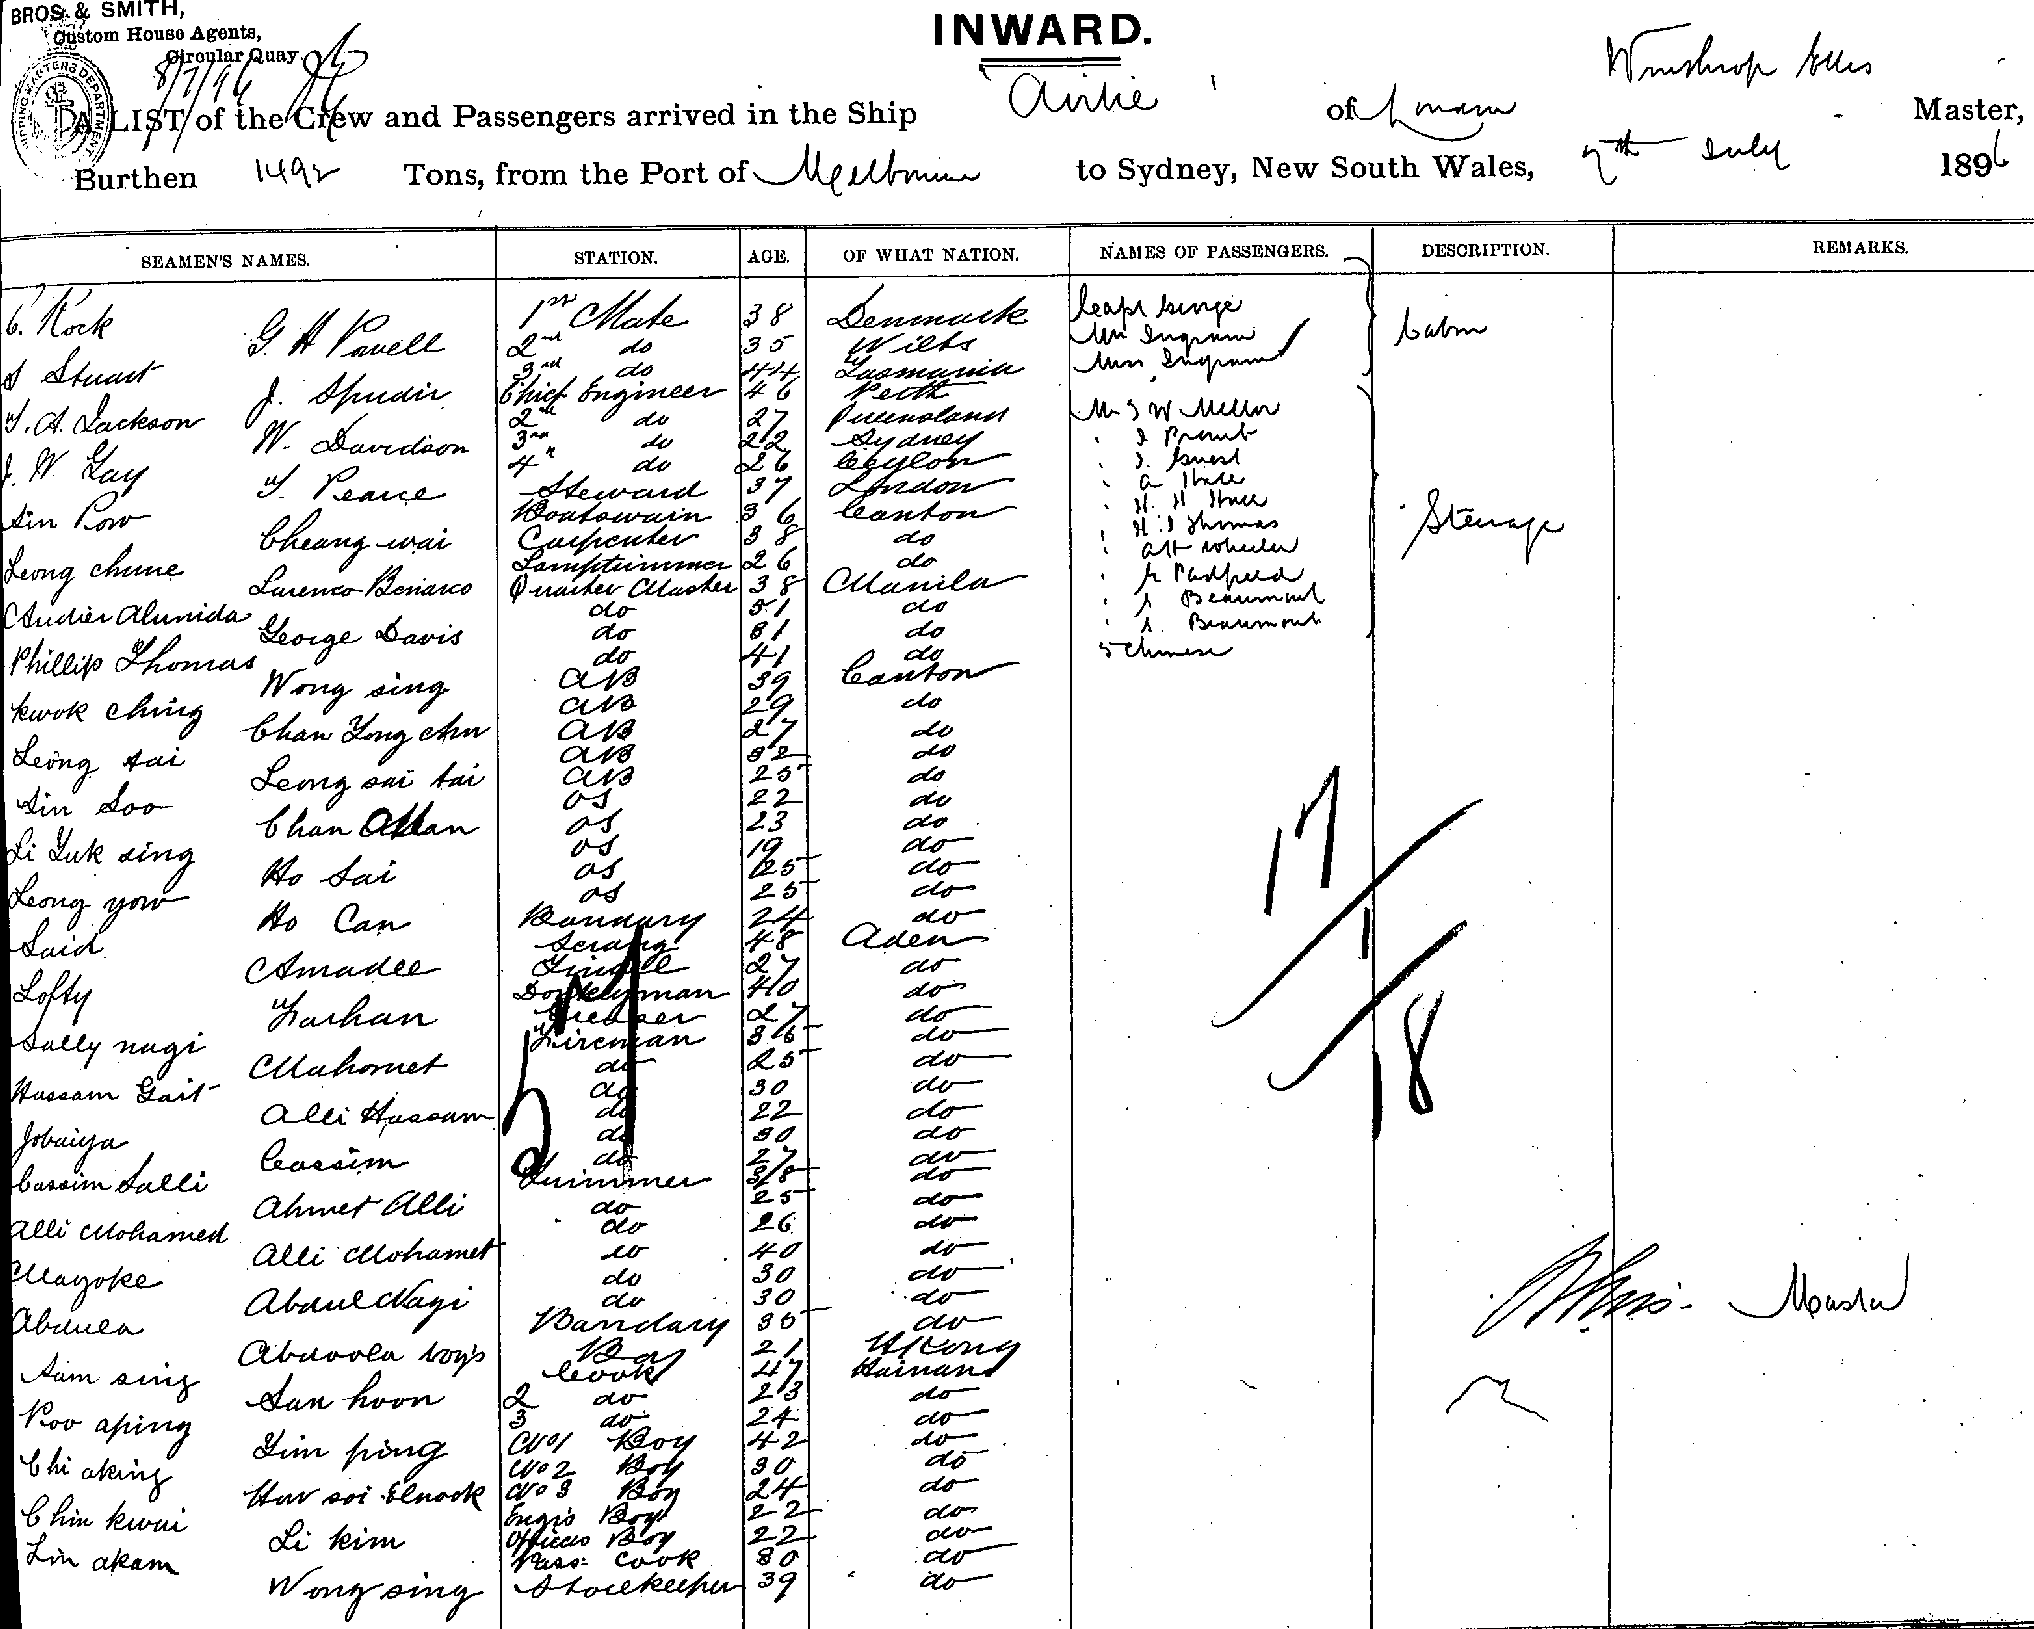 BROS. & SMITH,
Custom House Agents,
Circular Quay
8/7/96
INWARD.
Winthrop Ellis
A LIST of the Crew and Passengers arrived in the Ship "Airlie" of London Master,
Burthen 1492 Tons, from the Port of Melbourne to Sydney, New South Wales, 7th July 1896
SEAMEN'S NAMES. STATION. AGE. OF WHAT NATION. NAMES OF PASSENGERS. DESCRIPTION. REMARKS.
C. Rock 1st Mate 38 Denmark Capt George
G. H Powell 2nd do 35 Wilts Mr Ingram Cabin
Stuart 3rd do 44 Tasmania Mrs Ingram
J. Spudir Chief Engineer 46 Perth
T. A. Jackson 2nd do 27 Queensland Mr J W Mellor
W. Davidson 3rd do 22 Sydney
J. W Gay 4" do 26 Ceylon " J. Guest
T. Pearce Steward 37 London " A Hale
Sin Row Boatswain 36 Canton " H. H
Cheang wai Carpenter 38 do " H J Thomas Steerage
Leong chune Lamptrimmer 26 do " Wheeler
Larenco Beniarco Quarter Master 38 Manila
Andier Alumida do 51 do " Beaumont
George Davis do 31 do " Beaumont
Phillip Thomas do 41 do 5 Chinese
Wong sing AB 39 Canton
Kwok ching AB 29 do
Chan Yong chu AB 27 do
Leong tai AB 32 do
Leong sai tai AB 25 do
Sin Soo OS 22 do
Chan Allan OS 23 do
Li Yuk sing OS 19 do
Ho Sai OS 25 do
Leong yow OS 25 do
Ho Can Bandary 24 do
Said Serang 48 Aden
Amadee Tindle 27 do
Lofty Donkeyman 40 do
Farhan Greaser 27 do
Sally nagi Fireman 36 do
Mahomet do 25 do
Hassam Gait do 30 do
Alli Hassam do 22 do
Jobaiya do 30 do
Cassim do 27 do
Cassim Salli Trimmer 38 do
Ahmet Alli do 25 do
Alli Mohamed do 26 do
Alli Mohamet do 40 do
Mayoke do 30 do
Abdul Nagi do 30 do
Abdula Bandary 35 do
Abdoola boys Boy 21 H Kong
Sam sing Cook 47 Hainan
San hoon 2 do 23 do
Roo aping 3 do 24 do
Yim ping No 1 Boy 42 do
Chi aking No 2 Boy 30 do
Hav soi Elnook No 3 Boy 24 do
Chin kwai Engrs Boy 22 do
Li kim Officers Boy 22 do
Lin akam Pass: Cook 30 do
Wong sing Storekeeper 39 do
51
17
1
18
WEllis Master